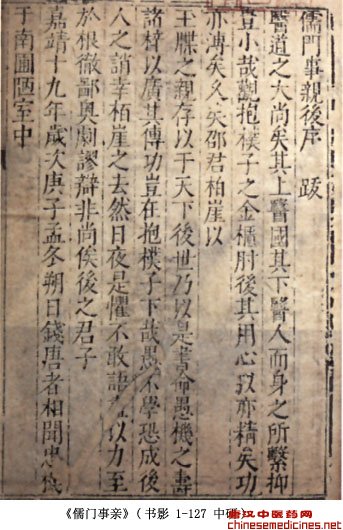 儒門事親後序 跋
醫道之大尚矣其上醫國其下醫人而身之所繫抑
豈小哉觀抱樸子之金櫃肘後其用心以亦精矣功
亦溥矣久矣邵君柏崖以
王牒之親存以于天下後世乃以是書命愚機之壽
諸梓以廣其傳功豈在抱樸子下哉愚不學恐成後
人之誚幸柏崖之去然日夜是懼不敢語以力至
於根徹鄙奧剔謬辯非尚俟後之君子
嘉靖十九年歲次庚子孟冬朔日錢唐者相聞忠
于南圃陋室中
《儒门事亲》(书影 1-127 中研
武汉中医药网
chinesemedicines.net